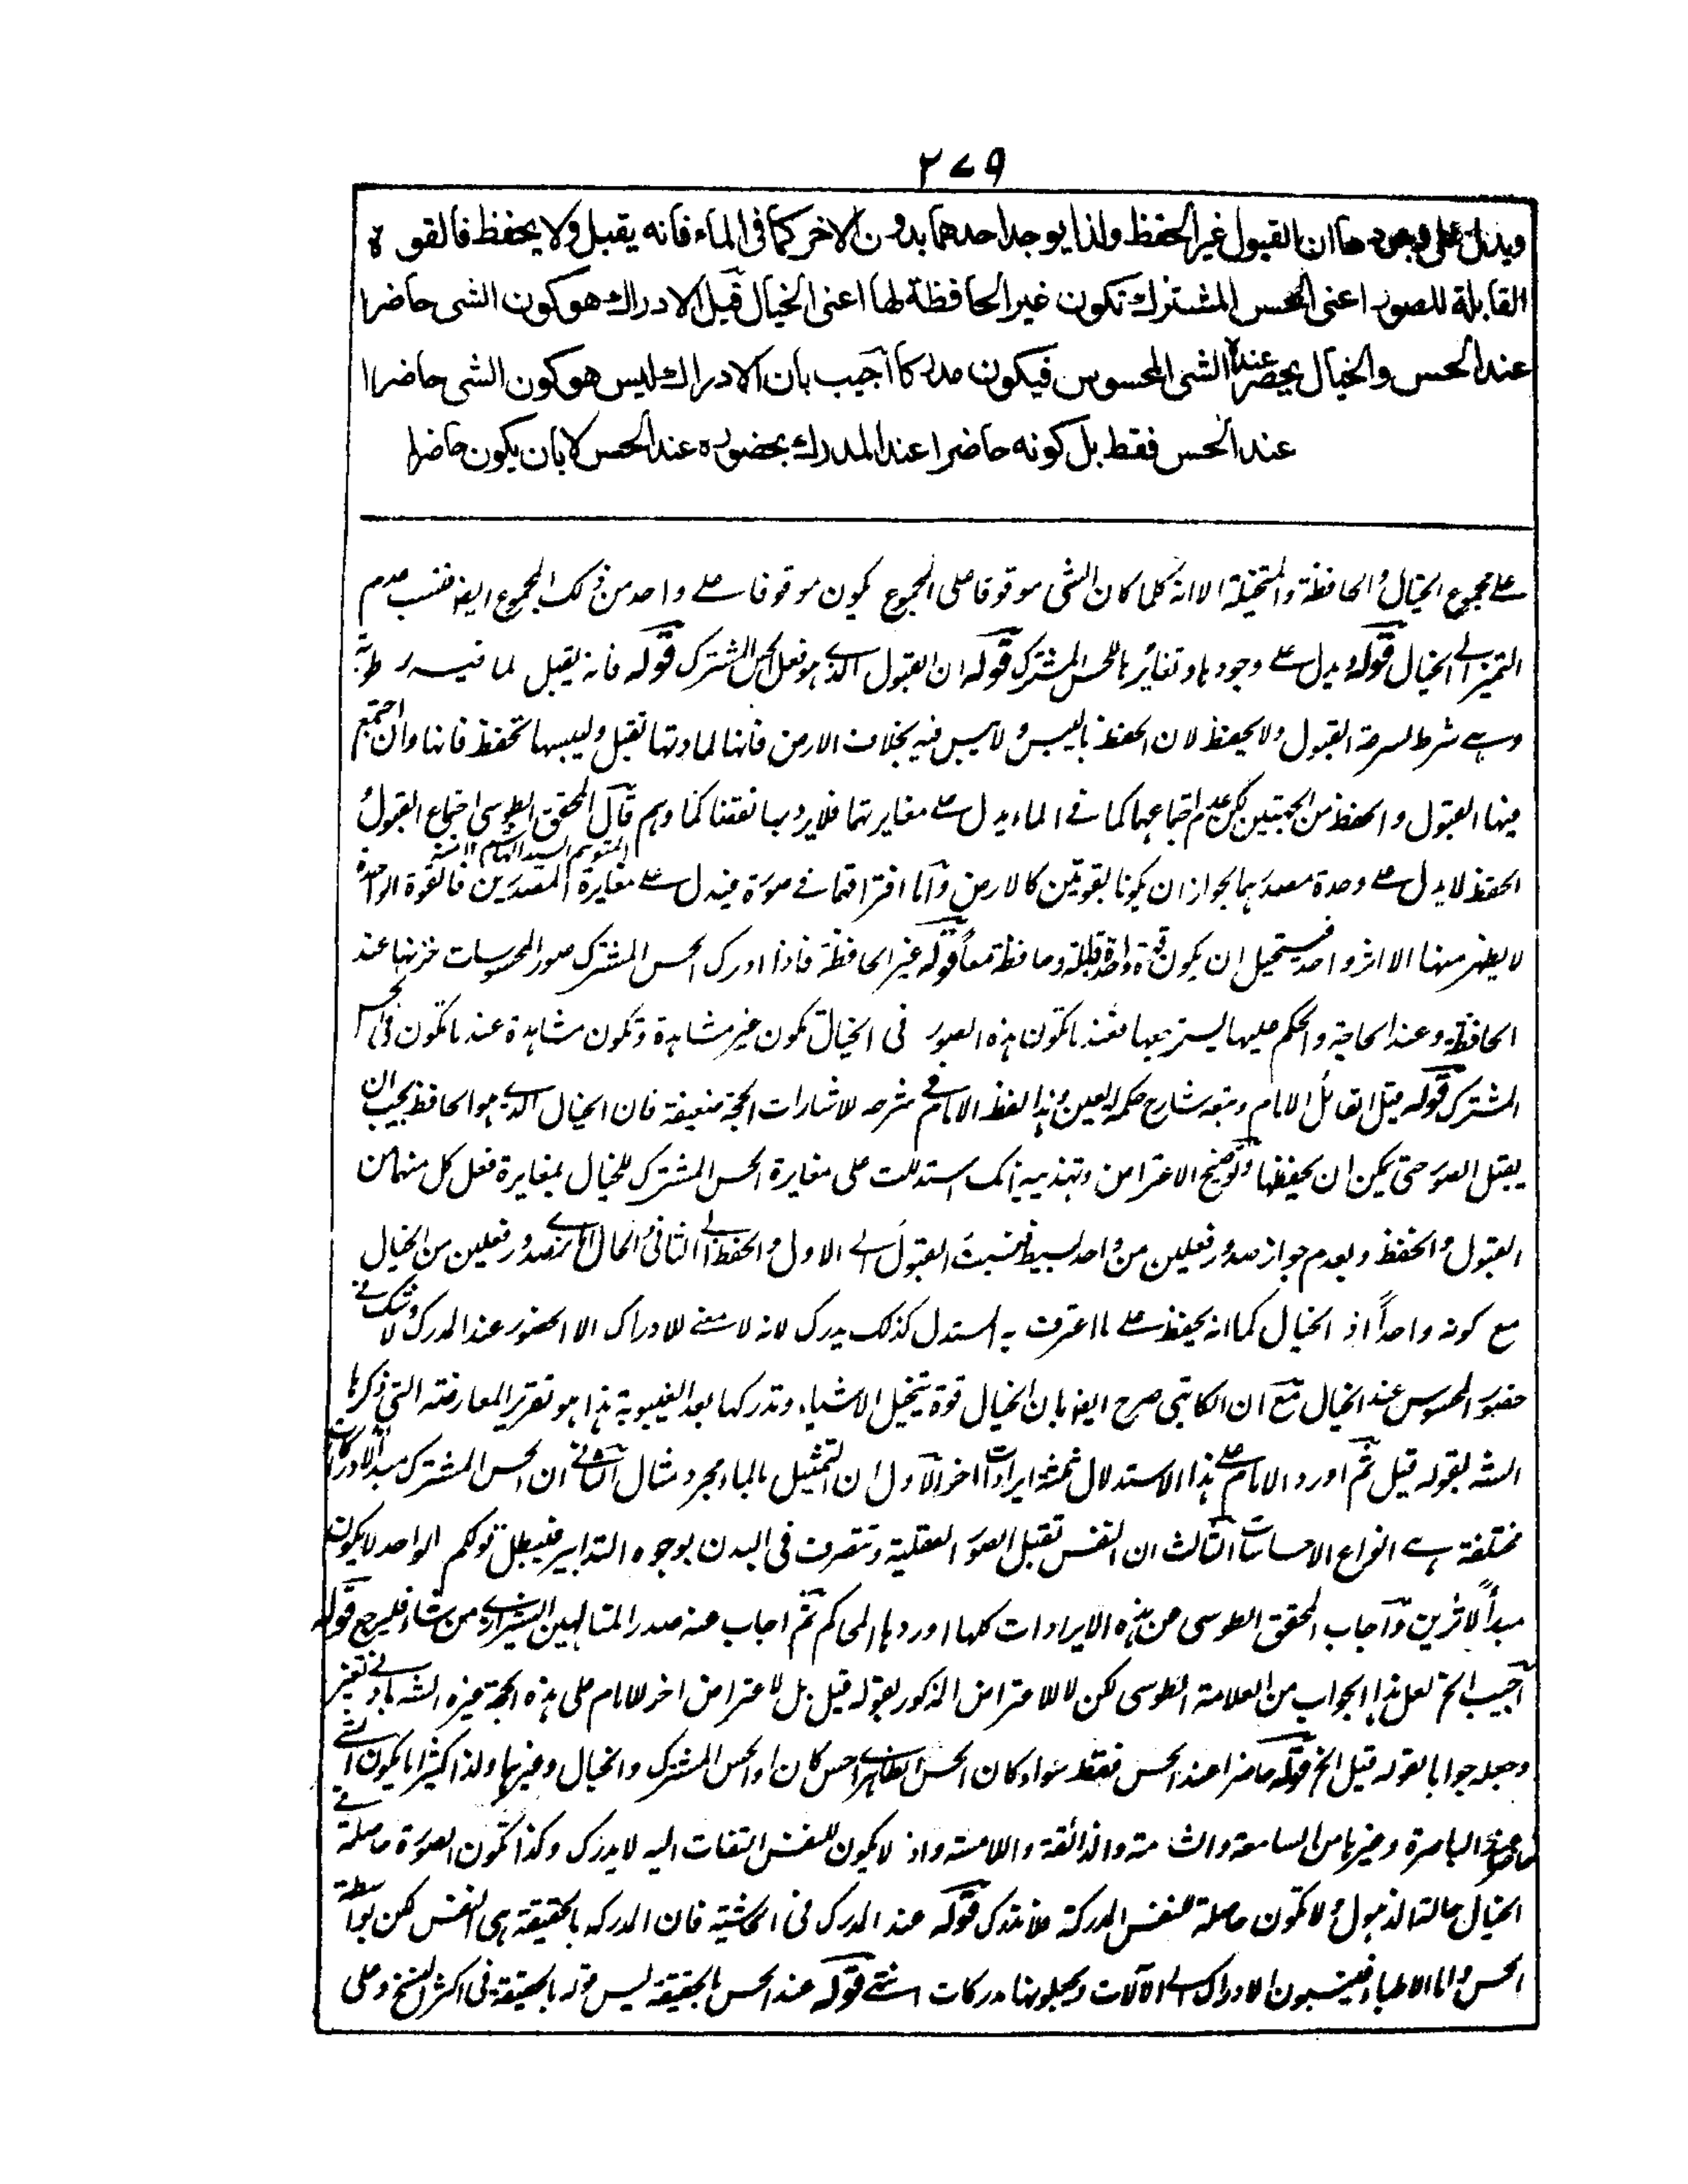 ٢٧٩
ويدل على وجودها ان القبول غير الحفظ ولذا يوجد احدهما بدون الاخر كما فى الماء فانه يقبل ولا يحفظ فالقوة
القابلة للصور اعنى الحس المشترك تكون غير الحافظة لها اعنى الخيال قيل الادراك هو كون الشى حاضرا
عند الحس والخيال يحضر عنده الشى المحسوس فيكون مدركا اجيب بان الادراك ليس هو كون الشى حاضرا
عند الحس فقط بل كونه حاضرا عند المدرك بحضوره عند الحس لا بان يكون حاضرا
على مجموع الخيال والحافظة والمتخيلة الا انه كلما كان الشئ موقوفا على المجموع يكون موقوفا على واحد من ذلك المجموع ايضا فنسب عدم
التميز الى الخيال قوله ويدل على وجودها وتغائرها للحس المشترك قوله ان القبول الذى هو فعل الحس المشترك قوله فانه يقبل لما فيه رطوبة
وهى شرط لسرعة القبول ولا يحفظ لان الحفظ باليبس ولا يبس فيه بخلاف الارض فانها لمادتها تقبل وليبسها تحفظ فانها وان اجتمع
فيها القبول والحفظ من الجهتين لكن عدم اجتماعهما كما فى الماء يدل على مغايرتهما فلا يرد بها نقضا كما وهم قال المحقق الطوسى اجتماع القبول و
الحفظ لا يدل على وحدة مصدرهما لجواز ان يكونا بقوتين كالارض واما افتراقهما فى صورة فيدل على مغايرة المصدرين فالقوة الواحدة
لا يظهر منها الا اثر واحد فيستحيل ان يكون قوة واحدة قابلة وحافظة معا قوله غير الحافظة فاذا ادرك الحس المشترك صور المحسوسات خزنها عند
الحافظة وعند الحاجة والحكم عليها يسترجعها فعند ما تكون هذه الصور فى الخيال تكون غير مشاهدة وتكون مشاهدة عند ما تكون فى الحس
المشترك قوله قيل القائل الامام وتبعه شارح حكمة العين وهذا لفظ الامام فى شرحه للاشارات الحجة ضعيفة فان الخيال الذى هو الحافظ يجب ان
يقبل الصور حتى يمكن ان يحفظها وتوضيح الاعتراض وتهذيبه انك استدللت على مغايرة الحس المشترك للخيال بمغايرة فعل كل منهما من
القبول والحفظ وبعدم جواز صدور فعلين من واحد بسيط فنسبت القبول الى الاول والحفظ الى الثانى والحال انه صدور فعلين من الخيال
مع كونه واحداً اذ الخيال كما انه يحفظ على ما اعترف به المستدل كذلك يدرك لانه لا معنى للادراك الا الحضور عند المدرك ولا شك فى
حضور المحسوس عند الخيال مع ان الكاتبى صرح ايضا بان الخيال قوة يتخيل الاشياء وتدركها بعد الغيبوبة هذا هو تقرير المعارضة التى ذكرها
الشه بقوله قيل ثم اورد الامام على هذا الاستدلال ثلثة ايرادات اخر الاول ان التمثيل بالماء مجرد مثال الثانى ان الحس المشترك مبدأ لادراكات
مختلفة هى انواع الاحساسات الثالث ان النفس تقبل الصور العقلية وتتصرف فى البدن بوجوه التدابير فيبطل قولكم الواحد لا يكون
مبدأ لاثرين واجاب المحقق الطوسى عن هذه الايرادات كلها اوردها المحاكم ثم اجاب عنه صدر المتالهين الشيرازى من شاء فليرجع قوله
اجيب الخ لعل هذا الجواب من العلامة الطوسى لكن لا للاعتراض المذكور بقوله قيل بل لاعتراض اخر للامام على هذه الحجة غيره الشه بادنى تغير
وجعله جوابا لقوله قيل الخ قوله حاضرا عند الحس فقط سواء كان الحس الظاهر احس كان او الحس المشترك والخيال وغيرها ولذا كثيرا ما يكون الشئ
حاضرا عند الباصرة وغيرها من السامعة والشامة والذائقة واللامسة واذ لا يكون للنفس التفات اليه لا يدرك وكذا تكون الصورة حاصلة فى
الخيال حالة الذهول ولا تكون حاصلة للنفس المدركة فلا يدرك قوله عند المدرك فى الحاشية فان المدرك بالحقيقة هى النفس لكن بواسطة
الحس واما الاطباء فينسبون الادراك الى الآلات ويجعلونها مدركات انتهى قوله عند الحس بالحقيقة ليس قوله بالحقيقة فى اكثر النسخ وعلى